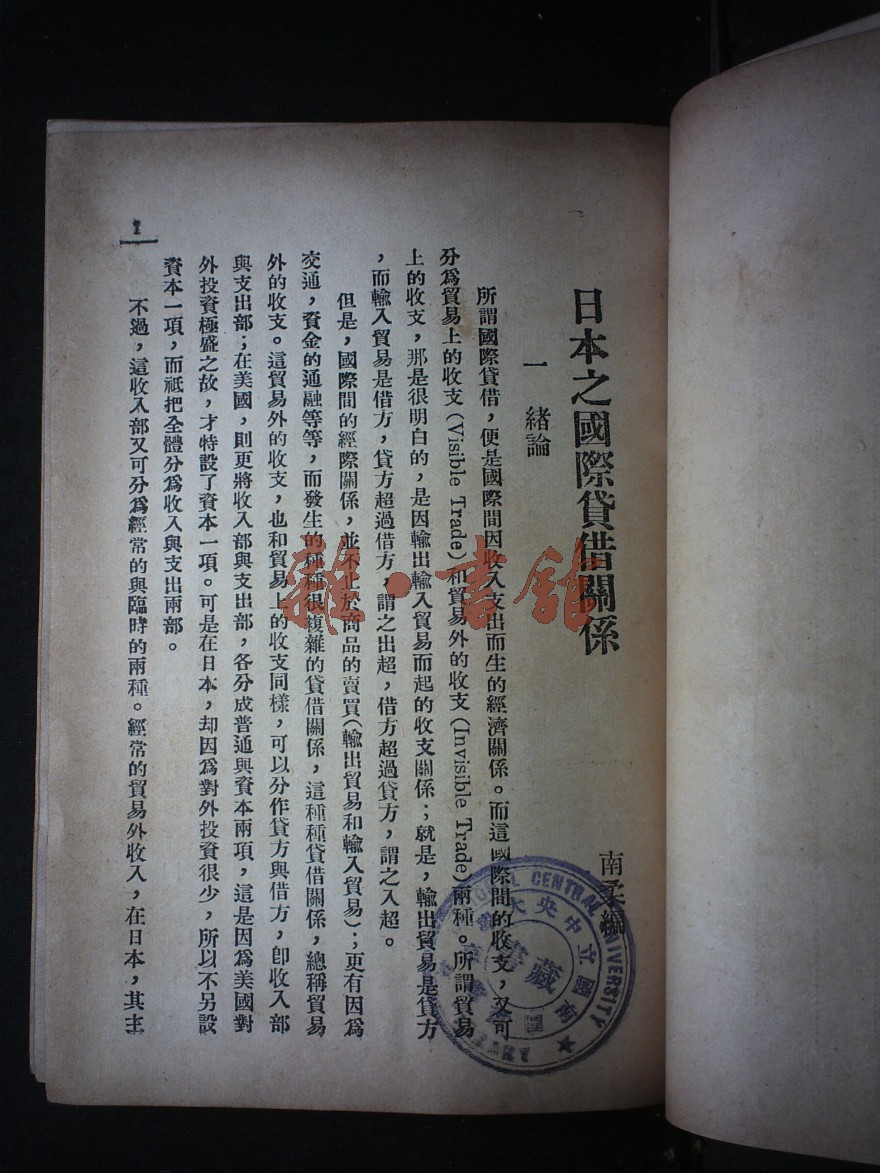 日本之國際貸借關係
南柔編
一　緒論
所謂國際貸借，便是國際間因收入支出而生的經濟關係。而這國際間的收支，又可
分爲貿易上的收支(Visible Trade)和貿易外的收支(Invisible Trade)兩種。所謂貿易
上的收支，那是很明白的，是因輸出輸入貿易而起的收支關係；就是，輸出貿易是貸方
，而輸入貿易是借方，貸方超過借方，謂之出超，借方超過貸方，謂之入超。
但是，國際間的經際關係，並不止於商品的賣買(輸出貿易和輸入貿易)；更有因爲
交通，資金的通融等等，而發生的種種很複雜的貸借關係，這種種貸借關係，總稱貿易
外的收支。這貿易外的收支，也和貿易上的收支同樣，可以分作貸方與借方，卽收入部
與支出部；在美國，則更將收入部與支出部，各分成普通與資本兩項，這是因爲美國對
外投資極盛之故，才特設了資本一項。可是在日本，却因爲對外投資很少，所以不另設
資本一項，而祇把全體分爲收入與支出兩部。
不過，這收入部又可分爲經常的與臨時的兩種。經常的貿易外收入，在日本，其主
1
雜·書館
CENTRAL UNIVERSITY
國立中央大學
藏